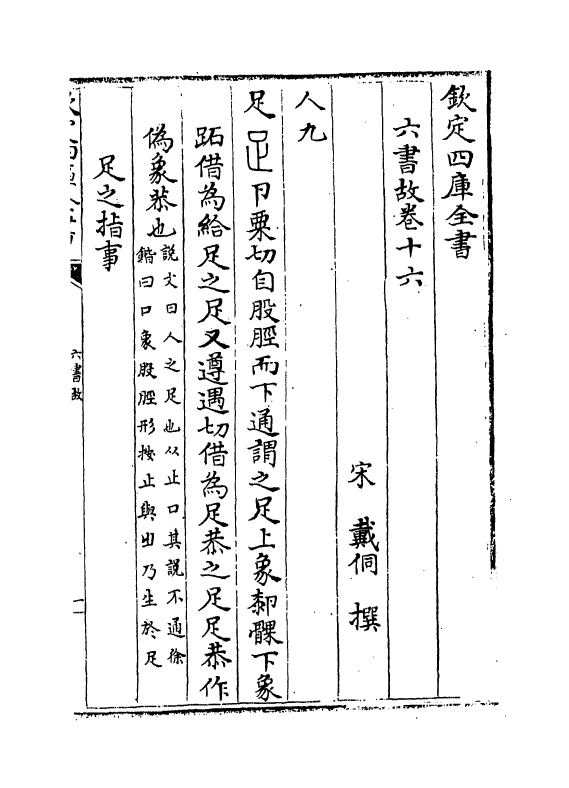 欽定四庫全書
六書故卷十六
宋 戴侗 撰
人九
足 粟切自股脛而下通謂之足上象厀髁下象
跖借為給足之足又遵遇切借為足恭之足足恭作
偽象恭也說文曰人之足也从止口其說不通徐
鍇曰口象股脛形按止與乃生於足
足之指事
六書故
一